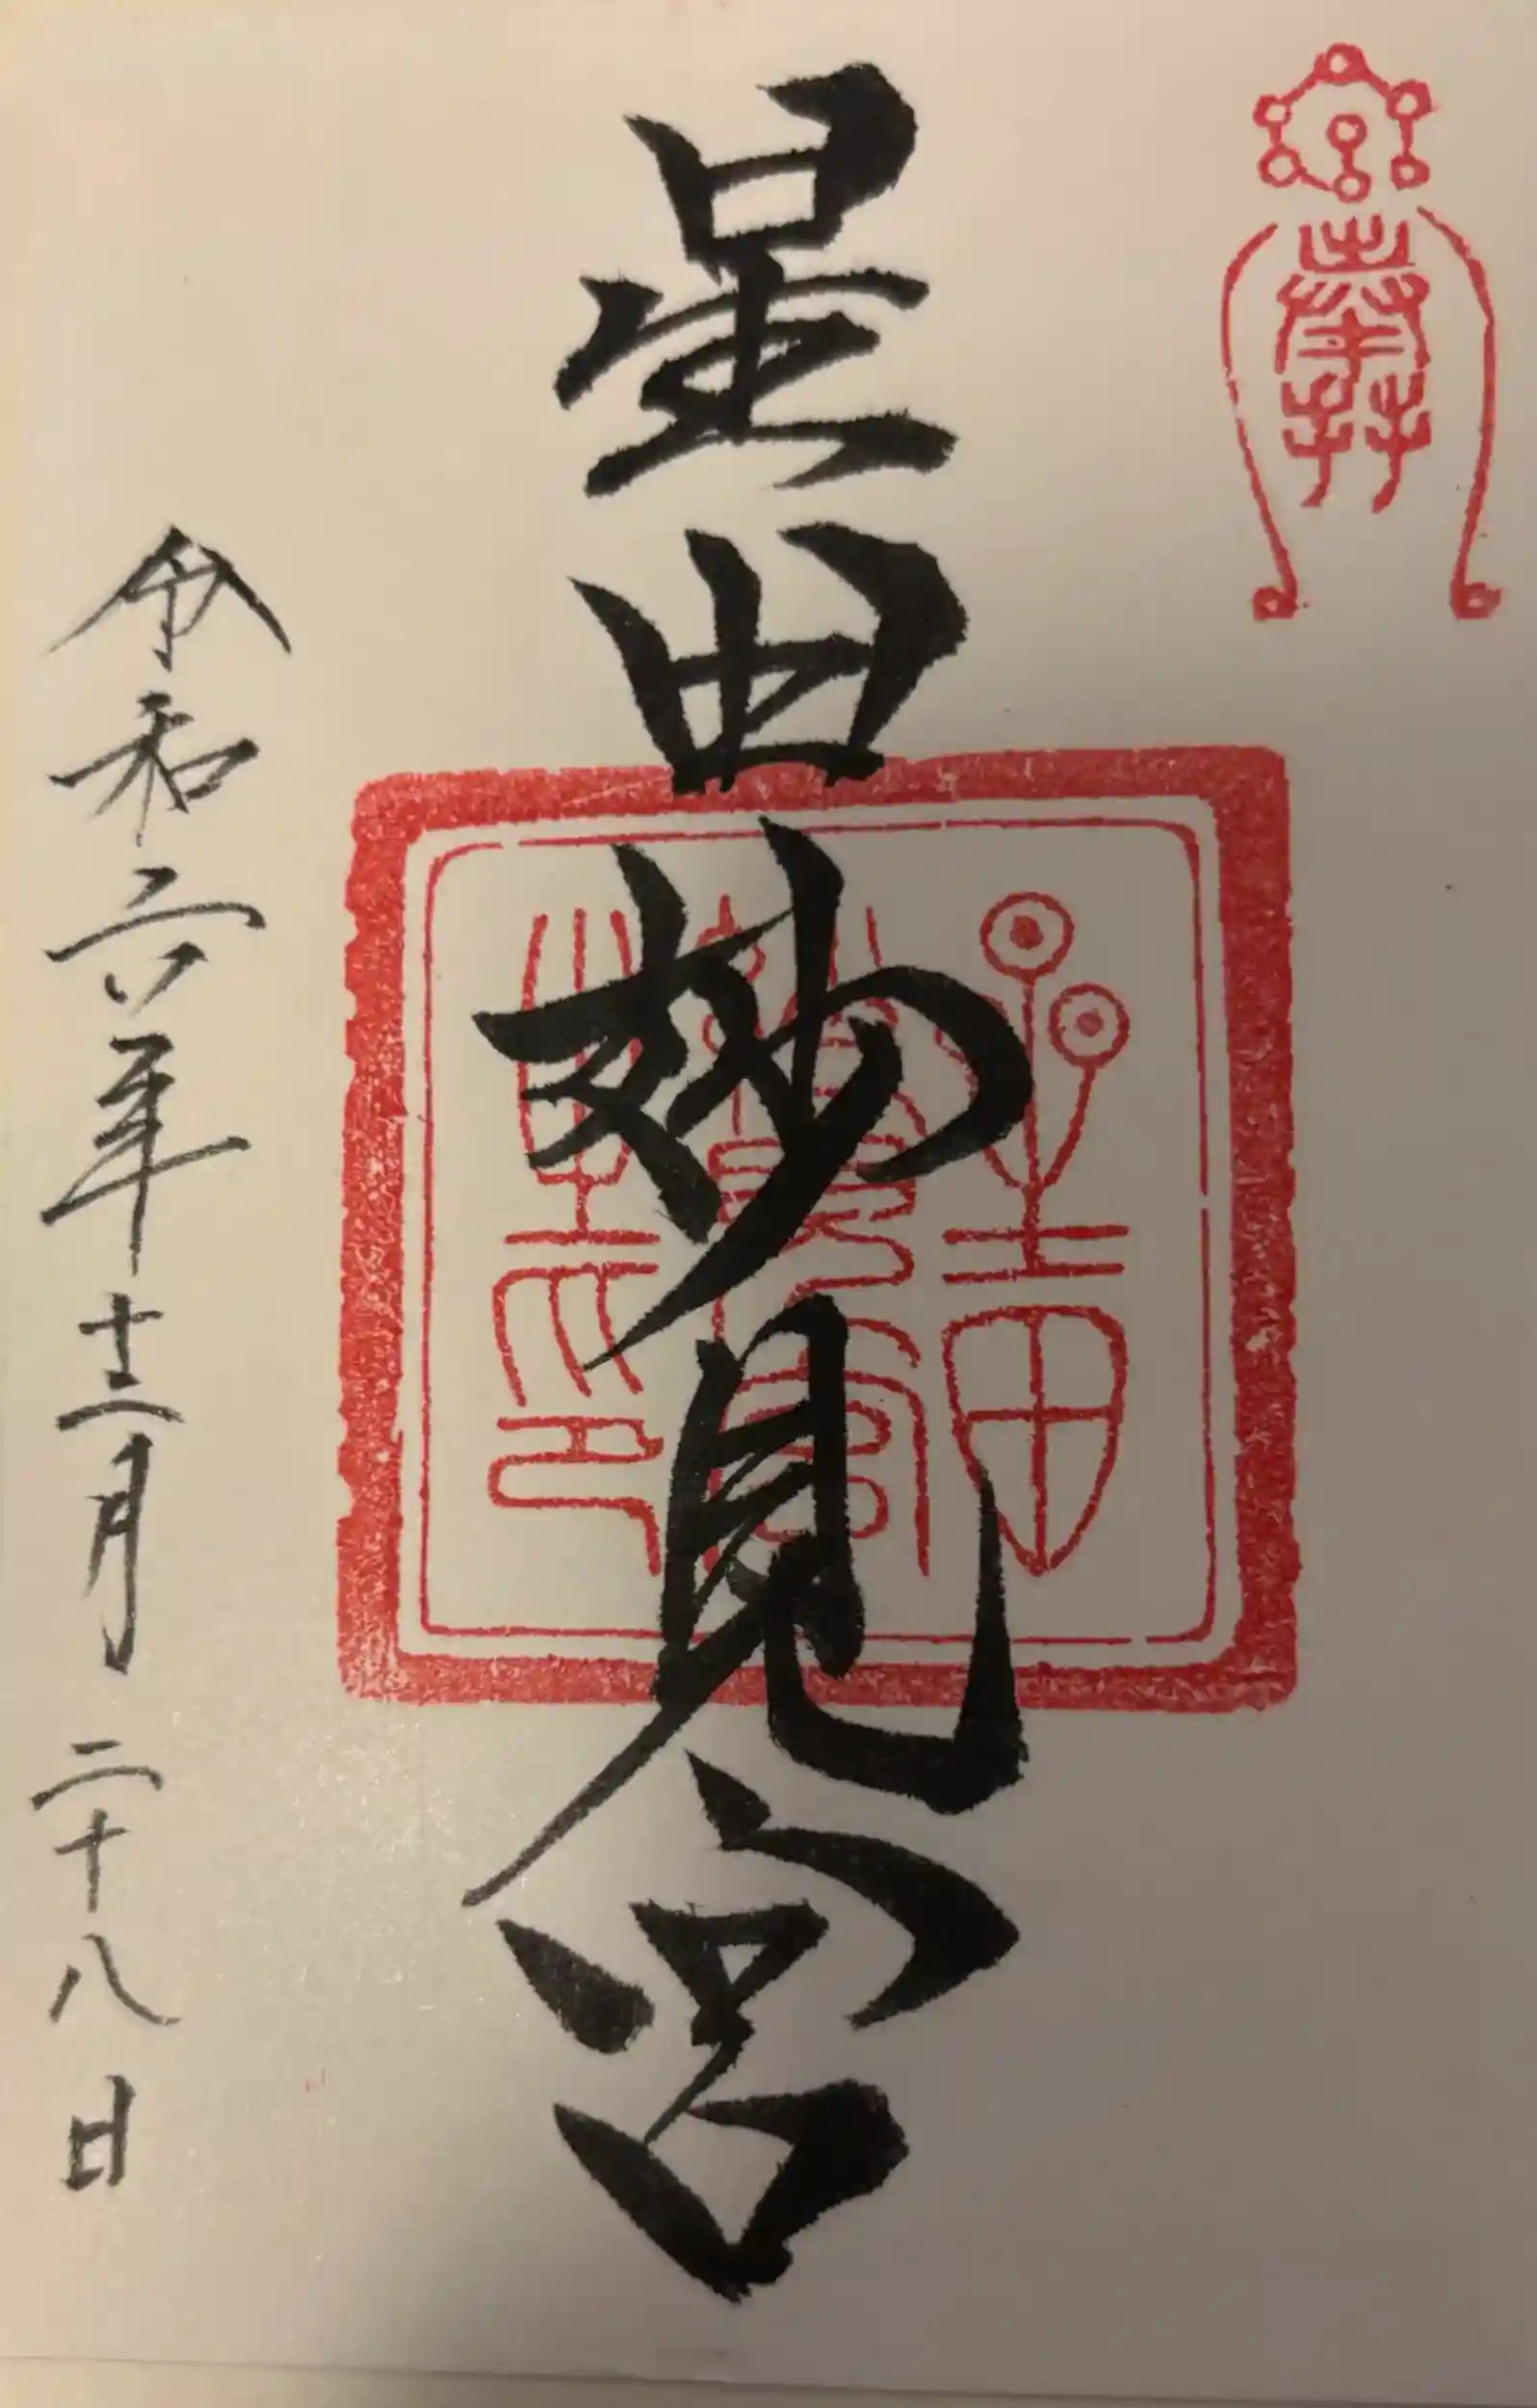 奉拝
星田妙見宮
星田
妙見宮
之印
令和六年十二月二十八日